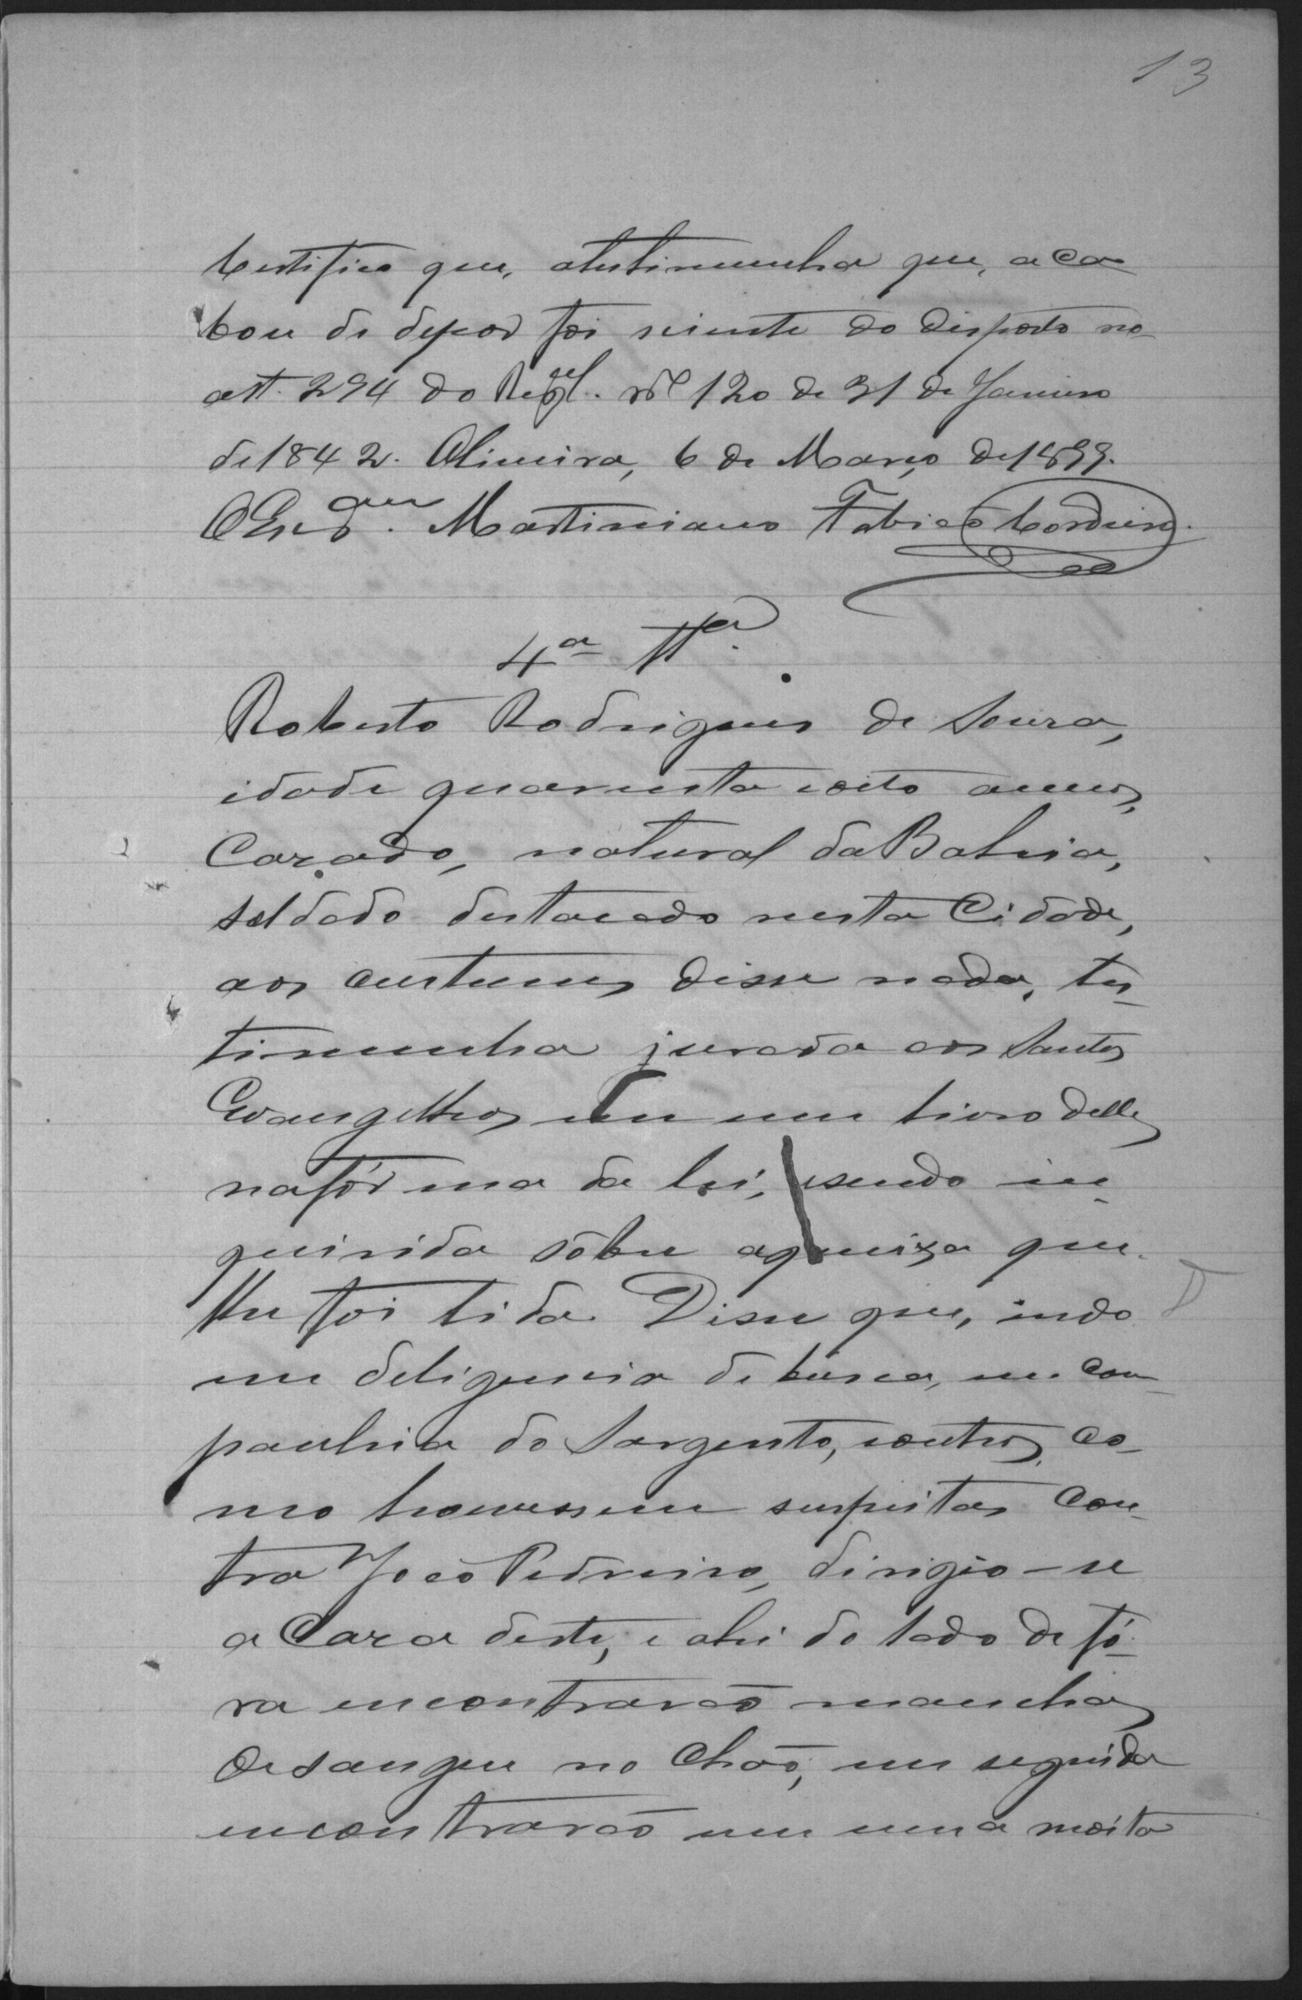 13
Certifico que, atestimunha que, aca
bou de depor foi sciente do disposto no
art. 294 do Regul. nº 120 de 31 de Janeiro
de 1842. Limeira, 6 de Março de 1899.
O Escr. Martiniano Fabio Cordeiro.
4ª Tª.
Roberto Rodrigues de Souza,
idade quarenta eoito annos,
Cazado, natural da Bahia,
soldado destacado nesta Cidade,
aos custumes disse nada, tes-
timunha jurada aos Santos
Evangelhos em um livro delles
nafórma da lei, esendo in-
quirida sôbre aqueixa que
lhe foi lida Disse que, indo
em deligencia de busca, em com-
panhia do Sargento, eoutros, co-
mo houvessem suspeitas con-
tra João Pedreiro, dirigio-se
a Caza deste, e ahi do lado de fó-
ra encontrarão manchas
de sangue no Chão, em seguida
encontrarão em uma moita